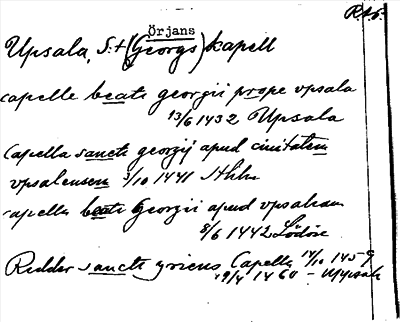 RAp.
Örjans
Upsala, S:t (Georgs) kapell
capelle beati georgii prope vpsala
13/6 1432 Upsala
Capella sancti georgij apud ciuitatem
vpsalensem 3/10 1441 Sthlm
capella beati Georgii apud vpsaliam
8/6 1442 Lödöse
Redder sancte yriens Capelle 14/10 1459
19/4 1460 - Uppsala